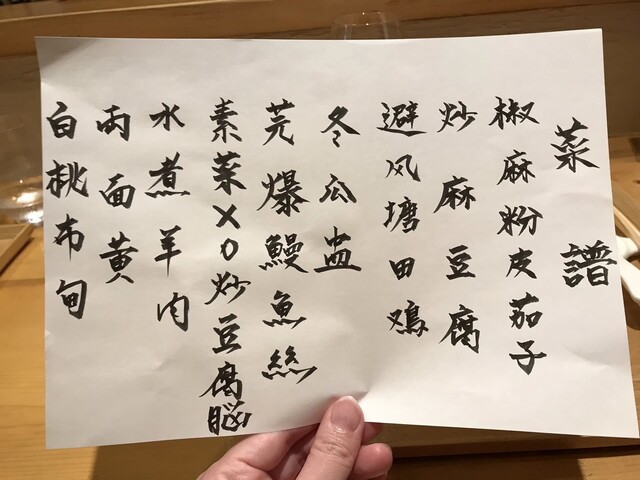 菜譜
椒麻粉皮茄子
炒麻豆腐
避风塘田鸡
冬瓜盅
芫爆鰻魚絲
素菜XO炒豆腐脳
水煮羊肉
両面黄
白桃布甸